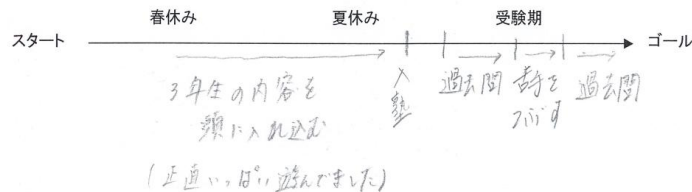 春休み 夏休み 受験期
スタート ゴール
3年生の内容を
頭に入れ込む
入塾
過去問
苦手を
つぶす
過去問
(正直いっぱい遊んでました)